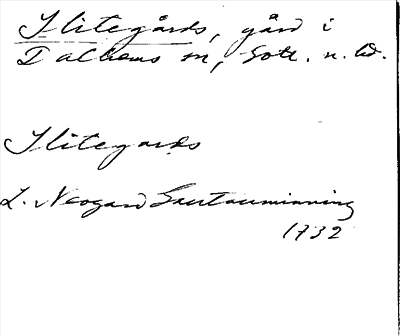 Hitegårds, gård i
Dalhems sn, Gotl. n. hd.
Hitegards
L. Neogard Gautauminning
1732